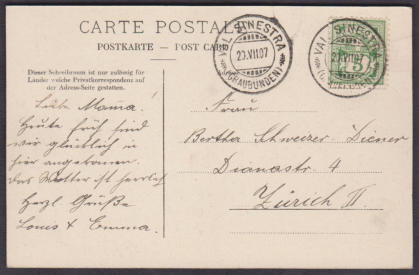 CARTE POSTALE
POSTKARTE — POST CARD
Dieser Schreibraum ist nur zulässig für
Länder welche Privatkorrespondenz auf
der Adress-Seite gestatten.
VAL SINESTRA
20.VII.07
(GRAUBÜNDEN)
VAL SINESTRA
20.VII.07
Liebe Mama!
Heute früh sind
wir glücklich in
hier angekommen.
Das Wetter ist herrlich
Herzl Grüße
Louis & Emma.
Frau
Bertha Schweizer-Diener
Dianastr. 4
Zürich II.